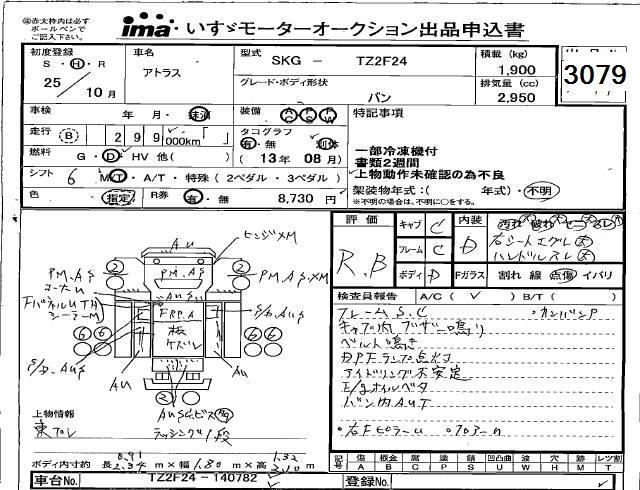 ※赤太枠内は必ず
ボールペンで
ご記入下さい。
ima いすゞモーターオークション出品申込書
初度登録 S・H・R 25 / 10月
車名 アトラス
型式 SKG - TZ2F24
グレード・ボディ形状 バン
積載 (kg) 1,900
排気量 (cc) 2,950
3079
車検 年 月・抹消
装備 AC PS PW
特記事項
走行 B 299 000km
タコグラフ 有・無 別体
(13年 08月)
燃料 G・D・HV 他( )
シフト 6 MT・A/T・特殊(2ペダル・3ペダル)
色 指定 R券 有・無 8,730 円
一部冷凍機付
書類2週間
上物動作未確認の為不良
架装物年式:( 年式)・不明
※不明の場合は、不明に○をする。
評価 R.B
キャブ C
フレーム C
ボディ D
内装 D
汚れ大 破れ大
右シートエグレ大
ハンドルスレ大
Fガラス 割れ 線 点傷 イバリ
検査員報告 A/C( ✓ ) B/T( )
フレームS.C
・カンバンP
キャブ内ブザー鳴り
ベルト鳴き
DPFランプ点灯
アイドリング不安定
E/gオイルベタ
バン内AUT
・右Fピラーu
・フロアーu
AU
ヒンジXM
PM.AS
PM.AS
PM.AS.XM
コーナーU
FパネルUTH
シーラーM
AUS
FRP.A
板
ケズレ
S/D.AUS
S/D.AUS
AU
AU
2
2
6
6
6
6
2
ラッシング1段
上物情報
東プレ
ボディ内寸約 長 m × 幅 1.80 m × 高 m
車台No. TZ2F24-140782
登録No.
記号 傷 A 板 B 腐 C 塗 P 錆 S 凹 U 凸凹曲 W 波 W 穴 H 欠 M レツ割 T